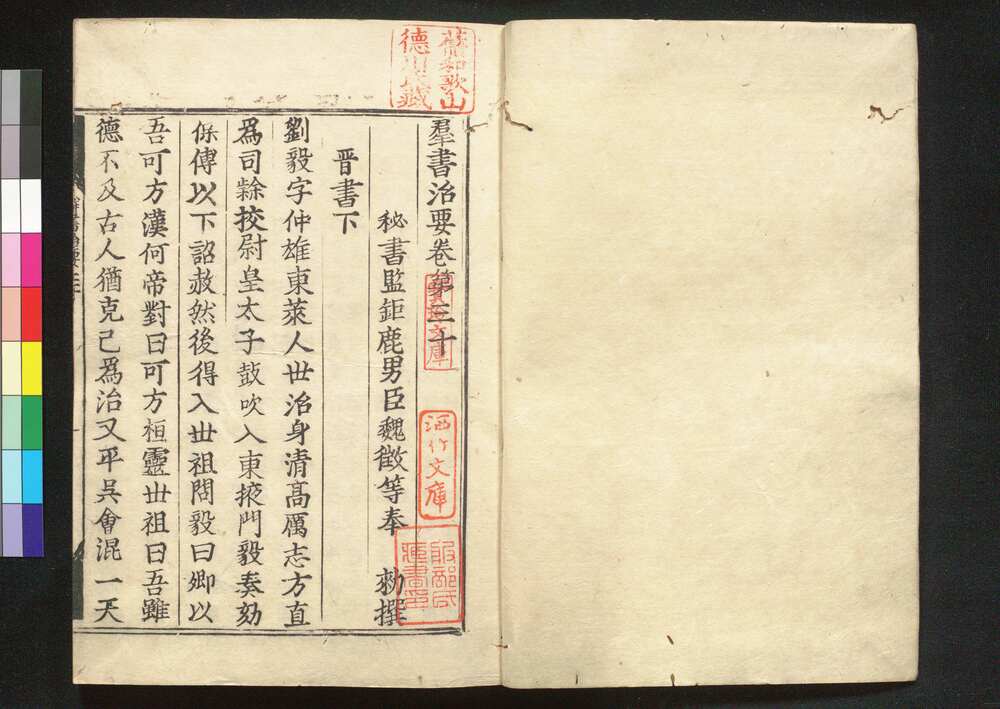 羣書治要卷第三十
秘書監鉅鹿男臣魏徵等奉 勑撰
晋書下
劉毅字仲雄東萊人丗治身清髙厲志方直
爲司䊘挍尉皇太子鼓吹入東掖門毅奏劾
保傅以下詔赦然後得入丗祖問毅曰卿以
吾可方漢何帝對曰可方桓靈丗祖曰吾雖
德不及古人猶克己爲治又平吳會混一天
舊和歌山
德川氏藏
洒竹文庫
服部氏